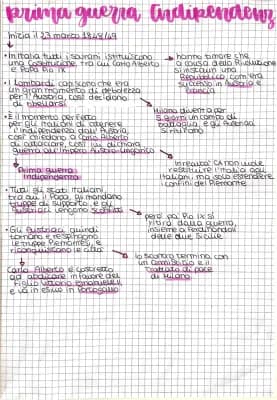 prima guerra Indipendenz
Inizia il 23 marzo 1848/49
• In Italia tutti i sovrani istituiscono
una Costituzione, tra cui Carlo Alberto
e Papa Pio IX
hanno timore che
a causa della Rivoluzione
si instauri una
Repubblica, com'era
successo in Austria e
Francia
• I Lombardi capiscono che era
un gran momento di debolezza
per l'Austria, così decidono
di ribellarsi
Milano diventa per
5 giorni un campo di
battaglia, e gli Austriaci
si ritirano
• È il momento perfetto
per gli Italiani di ottenere
l'indipendenza dall'Austria,
così chiedono a Carlo Alberto
di attaccare, così lui dichiara
guerra all'Impero Austro-Ungarico
In realtà CA non vuole
restituire l'Italia agli
Italiani, ma solo estendere
i confini del Piemonte
Prima guerra
Indipendenza
• Tutti gli stati italiani,
tra cui il Papa, gli mandano
truppe di supporto, e gli
Austriaci vengono sconfitti
però Papa Pio IX si
ritira dalla guerra,
insieme a Ferdinando II
delle due Sicilie
• Gli Austriaci quindi
tornano e respingono
le truppe Piemontesi, e
riconquistano le città
lo scontro termina con
un armistizio e il
trattato di pace
di Milano
Carlo Alberto è costretto
ad abdicare in favore del
figlio Vittorio Emanuele II
e va in esilio in Portogallo